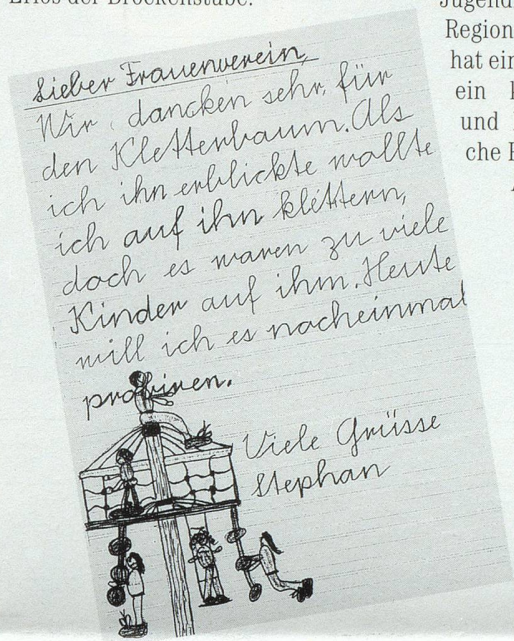 Erlös der Brockenstube.
Jugend
Region
hat ein
ein
und
che
Lieber Frauenverein,
Wir dancken sehr, für
den Klettenbaum. Als
ich ihn erblickte wollte
ich auf ihn klettern,
doch es waren zu viele
Kinder auf ihm. Heute
will ich es nocheinmal
probiren.
Viele Grüsse
Stephan